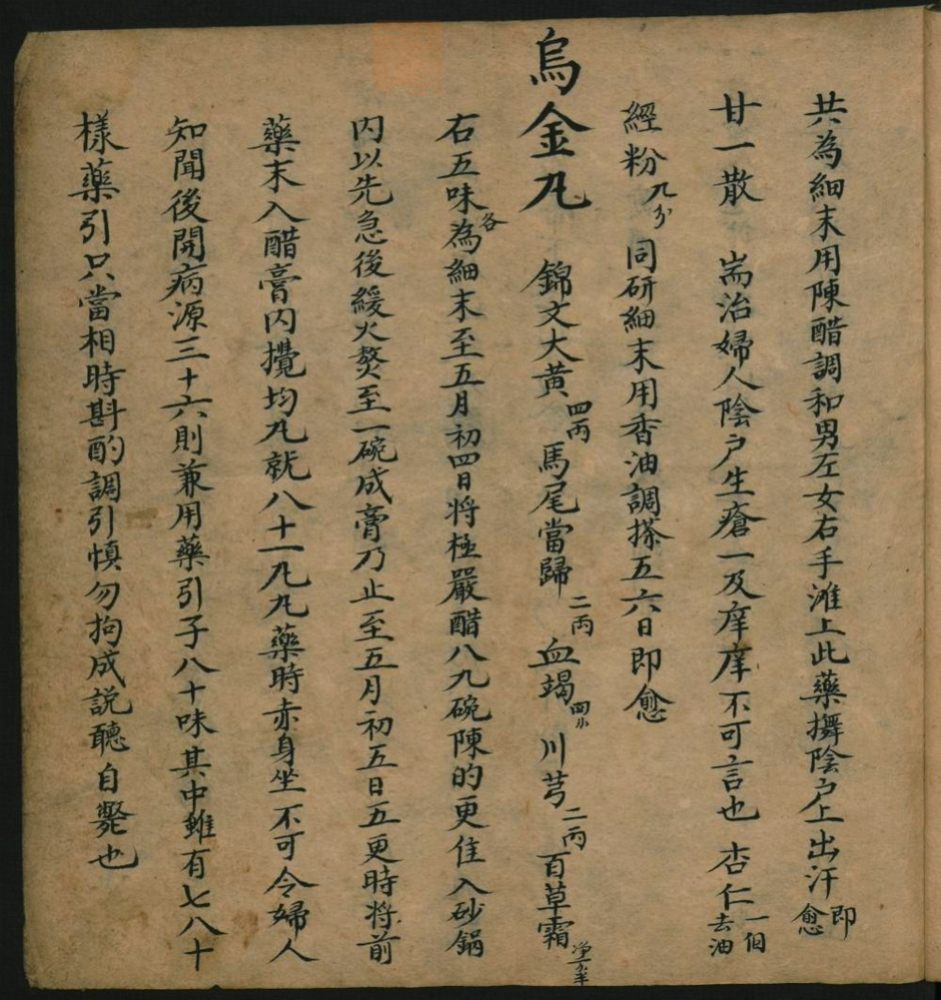 共為細末用陳醋調和男左女右手滩上此藥搱陰户上出汗即愈
甘一散 耑治婦人陰户生瘡一及痒痒不可言也 杏仁一個去油
經粉九分 同研細末用香油調搽五六日即愈
烏金丸 錦文大黄四兩 馬尾當歸二兩 血竭四小 川芎二兩 百草霜
右五味各為細末至五月初四日将極嚴醋八九碗陳的更佳入砂鍋
内以先急後緩火熬至一碗成膏乃止至五月初五日五更時将前
藥末入醋膏内攪均丸就八十一丸丸藥時赤身坐不可令婦人
知聞後開病源三十六則兼用藥引子八十味其中雖有七八十
樣藥引只當相時斟酌調引慎勿拘成説聽自斃也